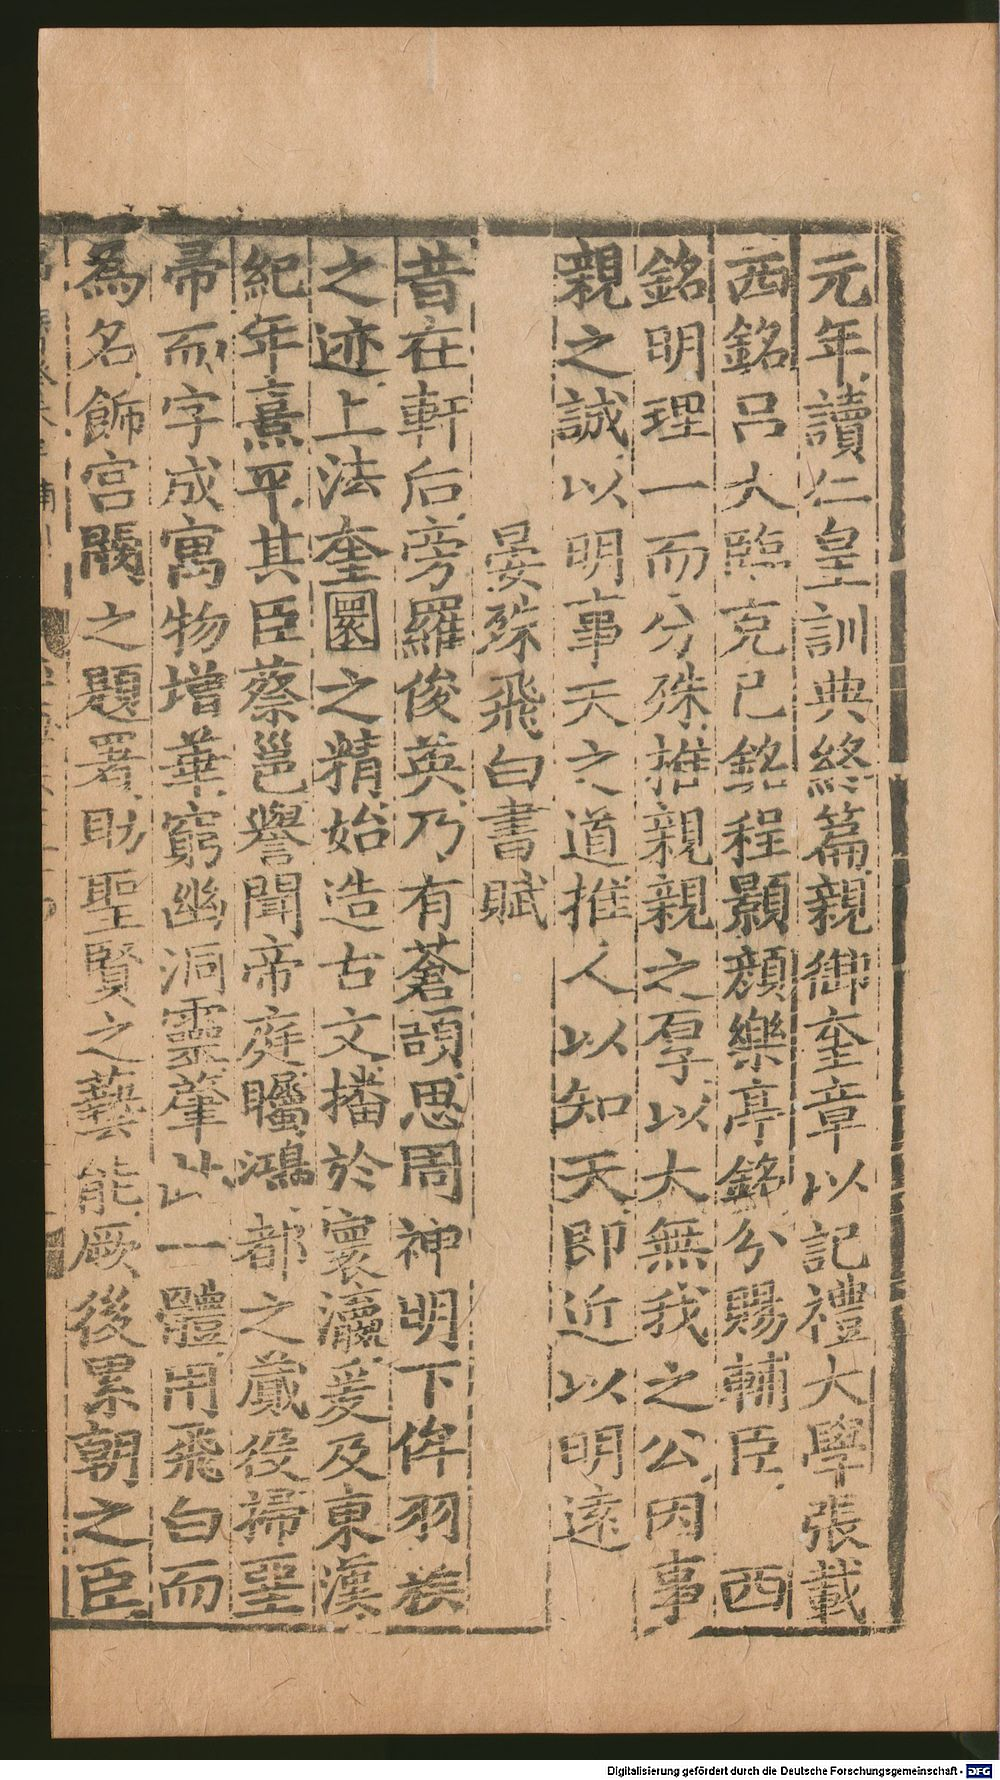 元年讀仁皇訓典終篇親御奎章以記禮大學張載
西銘呂大臨克已銘程顥顏樂亭銘分賜輔臣 西
銘明理一而分殊推親親之厚以大無我之公因事
親之誠以明事天之道推人以知天即近以明遠
晏殊飛白書賦
昔在軒后旁羅俊英乃有蒼頡思周神明下侔羽族
之迹上法奎圜之精始造古文播於寰瀛爰及東漢
紀年熹平其臣蔡邕譽聞帝庭矚鴻都之蕆役掃堊
帚而字成寓物增華窮幽洞靈肇此一體用飛白而
為名飾宮闕之題署助聖賢之藝能厥後累朝之臣
Digitalisierung gefördert durch die Deutsche Forschungsgemeinschaft - DFG